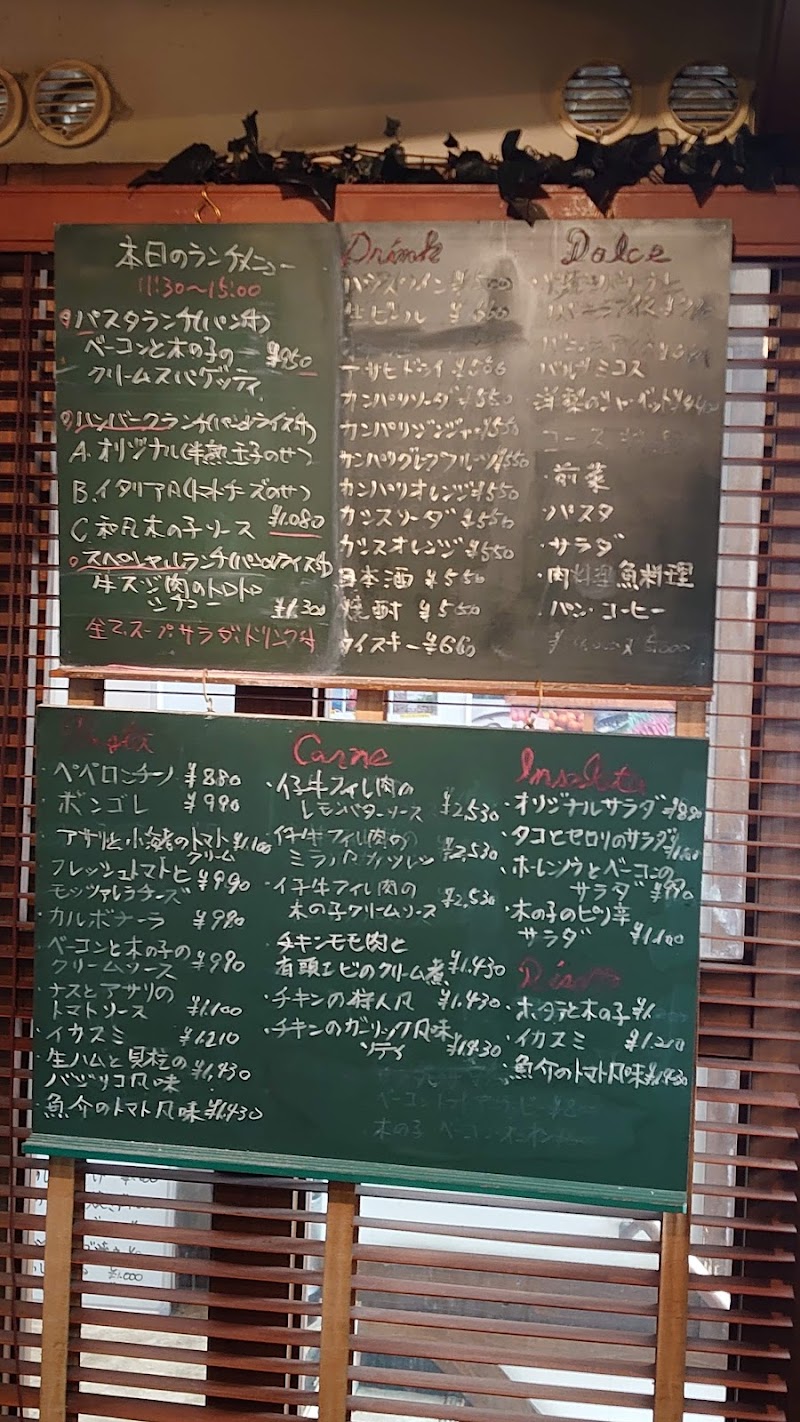 本日のランチメニュー
11:30〜15:00
パスタランチ(パン付)
ベーコンと木の子の ¥950
クリームスパゲッティ
ハンバーグランチ(パンorライス付)
A.オリジナル(半熟玉子のせ)
B.イタリアン(トマトチーズのせ)
C.和風木の子ソース ¥1.080
スペシャルランチ(パンorライス付)
牛スジ肉のトロトロ
シチュー ¥1.300
全て、スープ・サラダ・ドリンク付
Drink
グラスワイン ¥500
生ビール ¥660
アサヒドライ
カンパリソーダ ¥550
カンパリジンジャー ¥550
カンパリグレープフルーツ ¥550
カンパリオレンジ ¥550
カシスソーダ ¥550
カシスオレンジ ¥550
日本酒 ¥550
焼酎 ¥550
ウイスキー ¥660
Dolce
バルサミコス
コース
・前菜
・パスタ
・サラダ
・肉料理 魚料理
・パン・コーヒー
Pasta
・ペペロンチーノ ¥880
・ボンゴレ ¥990
アサリと小海老のトマト ¥1.100
クリーム
フレッシュトマトと
モッツァレラチーズ ¥990
・カルボナーラ ¥980
・ベーコンと木の子の
クリームソース ¥990
・ナスとアサリの
トマトソース ¥1.100
・イカスミ ¥1.210
・生ハムと貝柱の
バジリコ風味 ¥1.430
・魚介のトマト風味 ¥1.430
Carne
・仔牛フィレ肉の
レモンバターソース ¥2,530
・仔牛フィレ肉の
ミラノ風カツレツ ¥2,530
・仔牛フィレ肉の
木の子クリームソース ¥2,530
・チキンモモ肉と
有頭エビのクリーム煮 ¥1.430
・チキンの狩人風 ¥1.430
・チキンのガーリック風味
ソテイ ¥1.430
木の子 ベーコン オニオン
Insalata
・オリジナルサラダ ¥880
・タコとセロリのサラダ
・ホーレンソウとベーコンの
サラダ ¥990
・木の子のピリ辛
サラダ ¥1.100
Risotto
・ホタテと木の子
・イカスミ ¥1.210
・魚介のトマト風味 ¥1.430
¥1.000